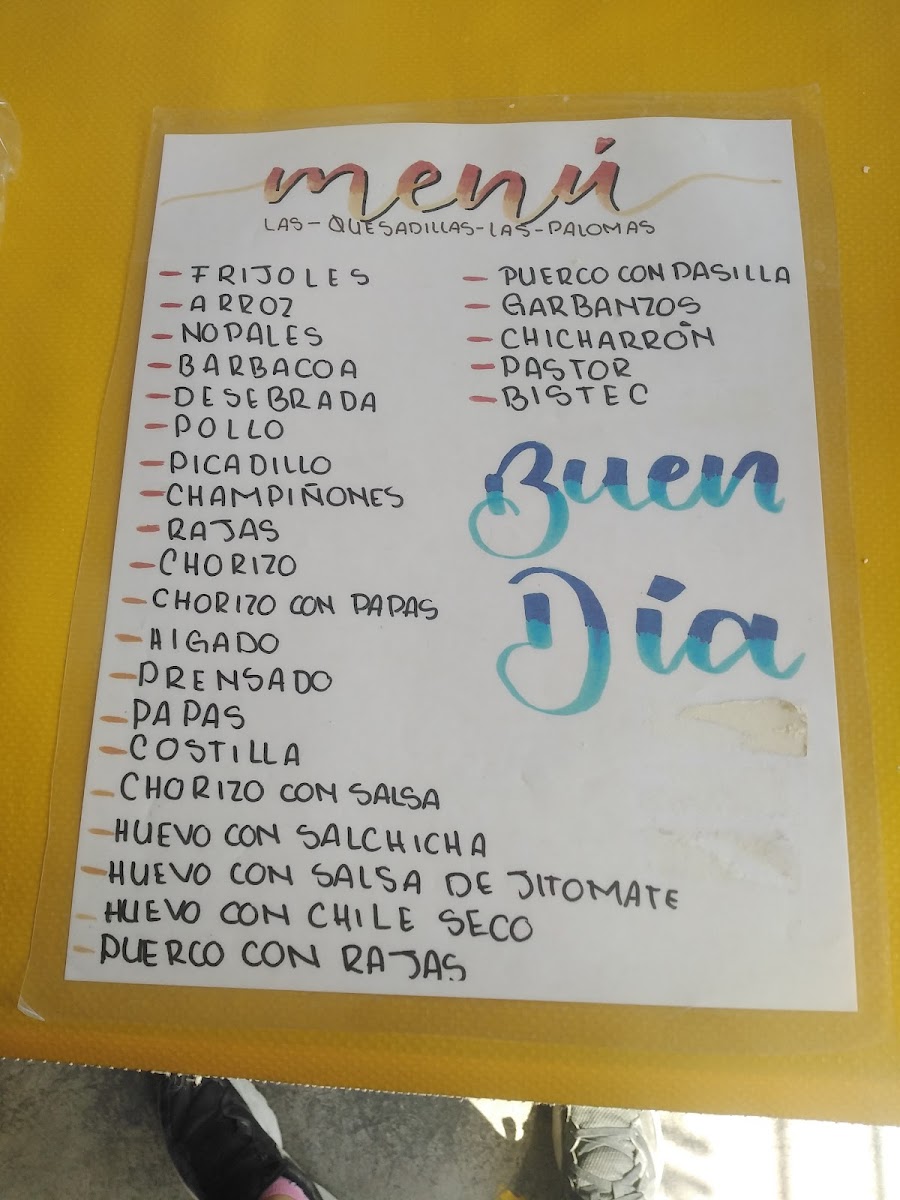 menú
LAS-QUESADILLAS-LAS-PALOMAS
- FRIJOLES
- ARROZ
- NOPALES
- BARBACOA
- DESEBRADA
- POLLO
- PICADILLO
- CHAMPIÑONES
- RAJAS
- CHORIZO
- CHORIZO CON PAPAS
- HIGADO
- PRENSADO
- PAPAS
- COSTILLA
- CHORIZO CON SALSA
- HUEVO CON SALCHICHA
- HUEVO CON SALSA DE JITOMATE
- HUEVO CON CHILE SECO
- PUERCO CON RAJAS
- PUERCO CON PASILLA
- GARBANZOS
- CHICHARRÓN
- PASTOR
- BISTEC
Buen
Día